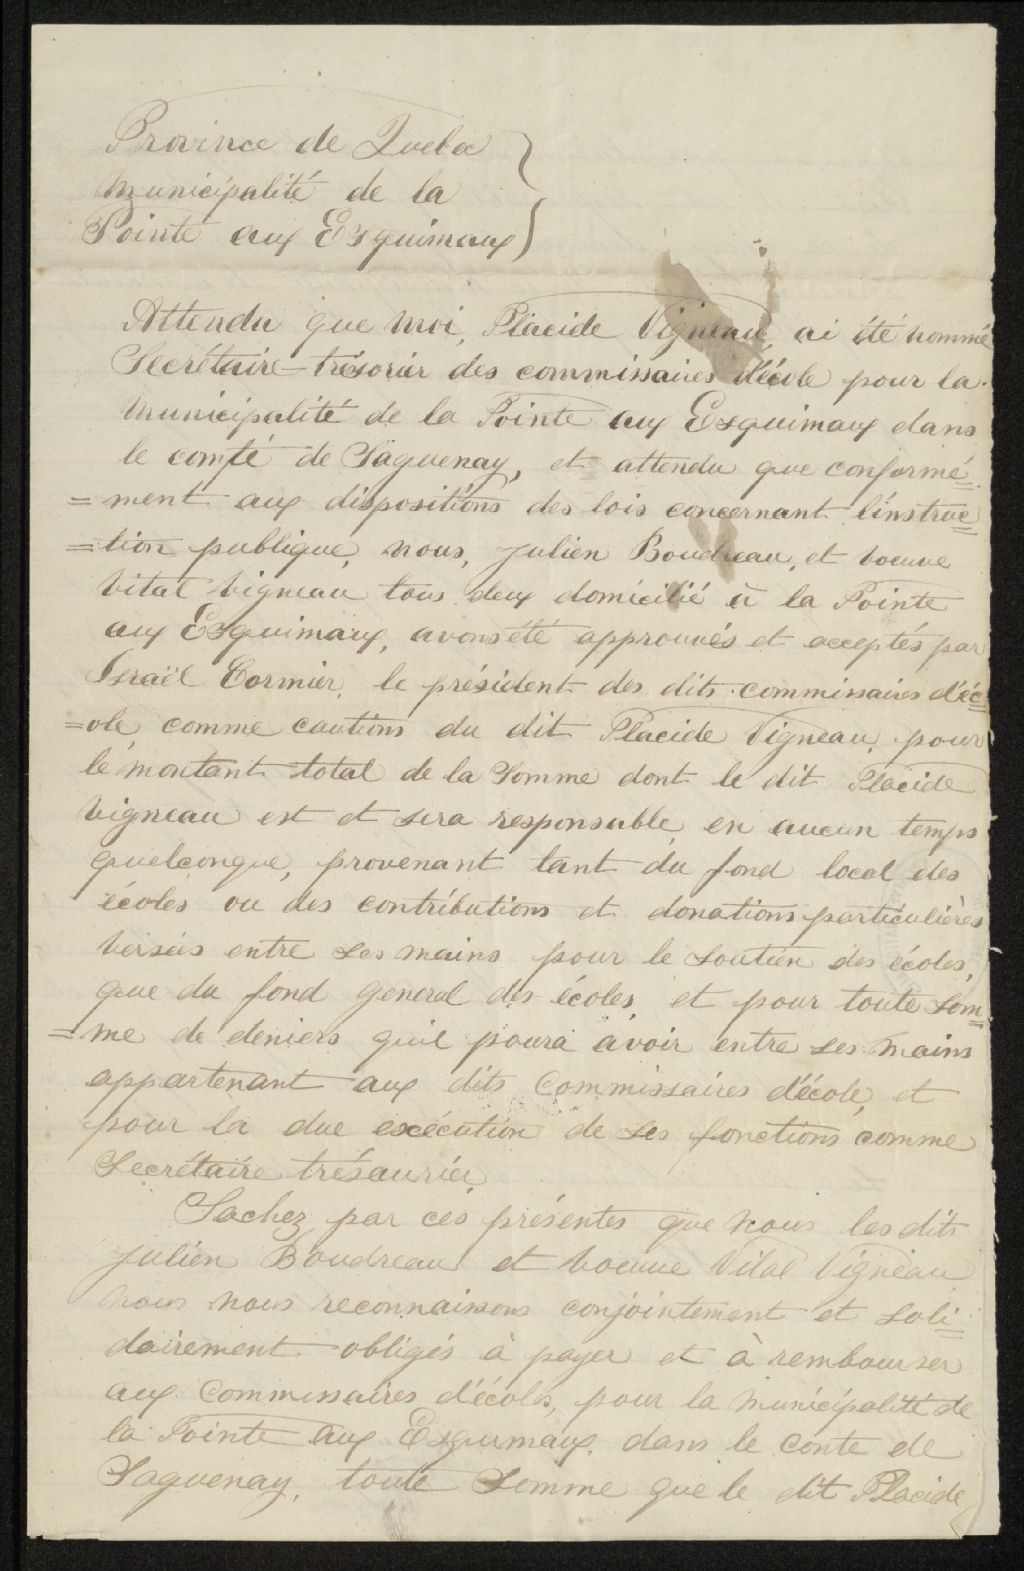 Province de Quebec
Municipalité de la
Pointe aux Esquimaux
Attendu que moi, Placide Vigneau, ai été nommé
Secrétaire-trésorier des commissaires d'école pour la
Municipalité de la Pointe aux Esquimaux dans
le comté de Saguenay, et attendu que conformé=
=ment aux dispositions des lois concernant l'instruc=
=tion publique, nous, Julien Boudreau, et voeuve
Vital Vigneau tous deux domicilié à la Pointe
aux Esquimaux, avons été approuvés et acceptés par
Israël Cormier, le président des dits commissaires d'éc=
=ole, comme cautions du dit Placide Vigneau, pour
le montant total de la Somme dont le dit Placide
Vigneau est et sera responsable en aucun temps
quelconque, provenant tant du fond local des
écoles ou des contributions et donations particulières
versées entre ses mains pour le soutien des écoles,
que du fond general des écoles, et pour toute Som=
=me de deniers qu'il poura avoir entre ses mains
appartenant aux dits Commissaires d'école, et
pour la due exécution de ses fonctions comme
Secrétaire trésaurier
Sachez par ces présentes que nous les dits
Julien Boudreau et voeuve Vital Vigneau
nous nous reconnaissons conjointement et soli=
dairement obligés à payer et à rembourser
aux Commissaires d'écols, pour la Municipalité de
la Pointe aux Esquimaux, dans le conte de
Saguenay, toute Somme que le dit Placide